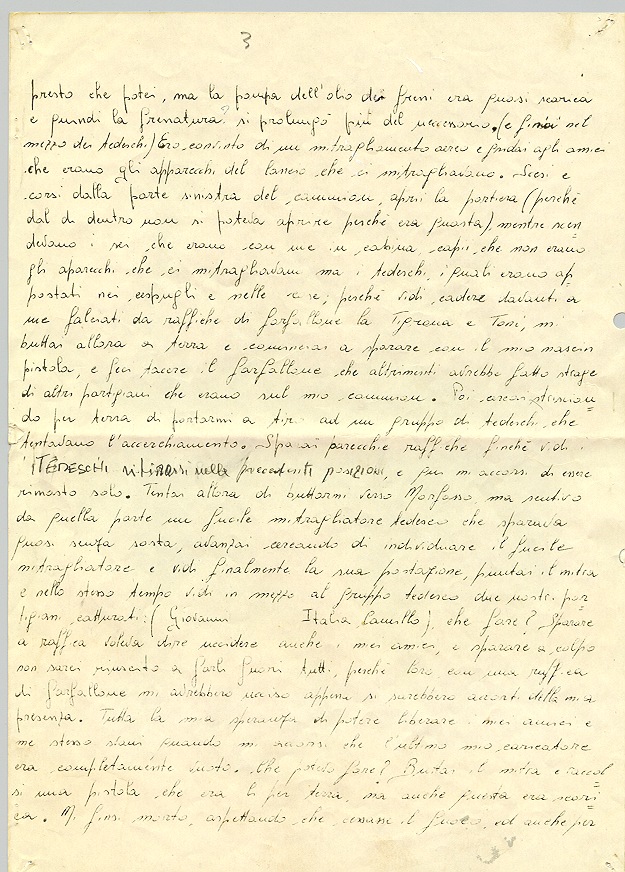 3
presto che potei, ma la pompa dell'olio dei freni era quasi scarica
e quindi la frenatura si prolungò più del necessario. (e finii nel
mezzo dei tedeschi) Ero convinto di un mitragliamento aereo e gridai agli amici
che erano gli apparecchi del lancio che ci mitragliavano. Scesi e
corsi dalla parte sinistra del cammion, aprii la portiera (perché
dal di dentro non si poteva aprire perché era guasta), mentre scen
devano i sei che erano con me in cabina capii che non erano
gli aparecchi che ci mitragliavam ma i tedeschi, i quali erano ap
postati nei cespugli e nelle case; perché vidi cadere davanti a
me falciati da raffiche di farfallone la Tigrona e Toni, mi
buttai allora a terra e cominciai a sparare con il mio
pistola, e feci tacere il farfallone che altrimenti avrebbe fatto strage
di altri partigiani che erano sul mio cammion. Poi cercai striscian=
do per terra di portarmi a tiro ad un gruppo di tedeschi, che
tentavano l'accerchiamento. Sparai parecchie raffiche finché vidi i
TEDESCHI ritirarsi nelle precedenti posizioni, e poi mi accorsi di essere
rimasto solo. Tentai allora di buttarmi verso Morfasso, ma sentivo
da quella parte un fucile mitragliatore tedesco che sparava
quasi senza sosta, avanzai cercando di individuare il fucile
mitragliatore e vidi finalmente la sua postazione, puntai il mitra
e nello stesso tempo vidi in mezzo al gruppo tedesco due nostri par=
tigiani catturati: (Giovanni Italia, Camillo), che fare? Sparare
a raffica voleva dire uccidere anche i miei amici, e sparare a colpo
non sarei riuscito a farli fuori tutti, perché loro con una raffica
di farfallone mi avrebbero ucciso appena si sarebbero accorti della mia
presenza. Tutta la mia speranza di potere liberare i miei amici e
me stesso svanì quando mi accorsi che l'ultimo mio caricatore
era completamente vuoto. Che potevo fare? Buttai il mitra e raccol=
si una pistola che era lì per terra, ma anche questa era scari=
ca. Mi finsi morto, aspettando che cessasse il fuoco, ed anche per